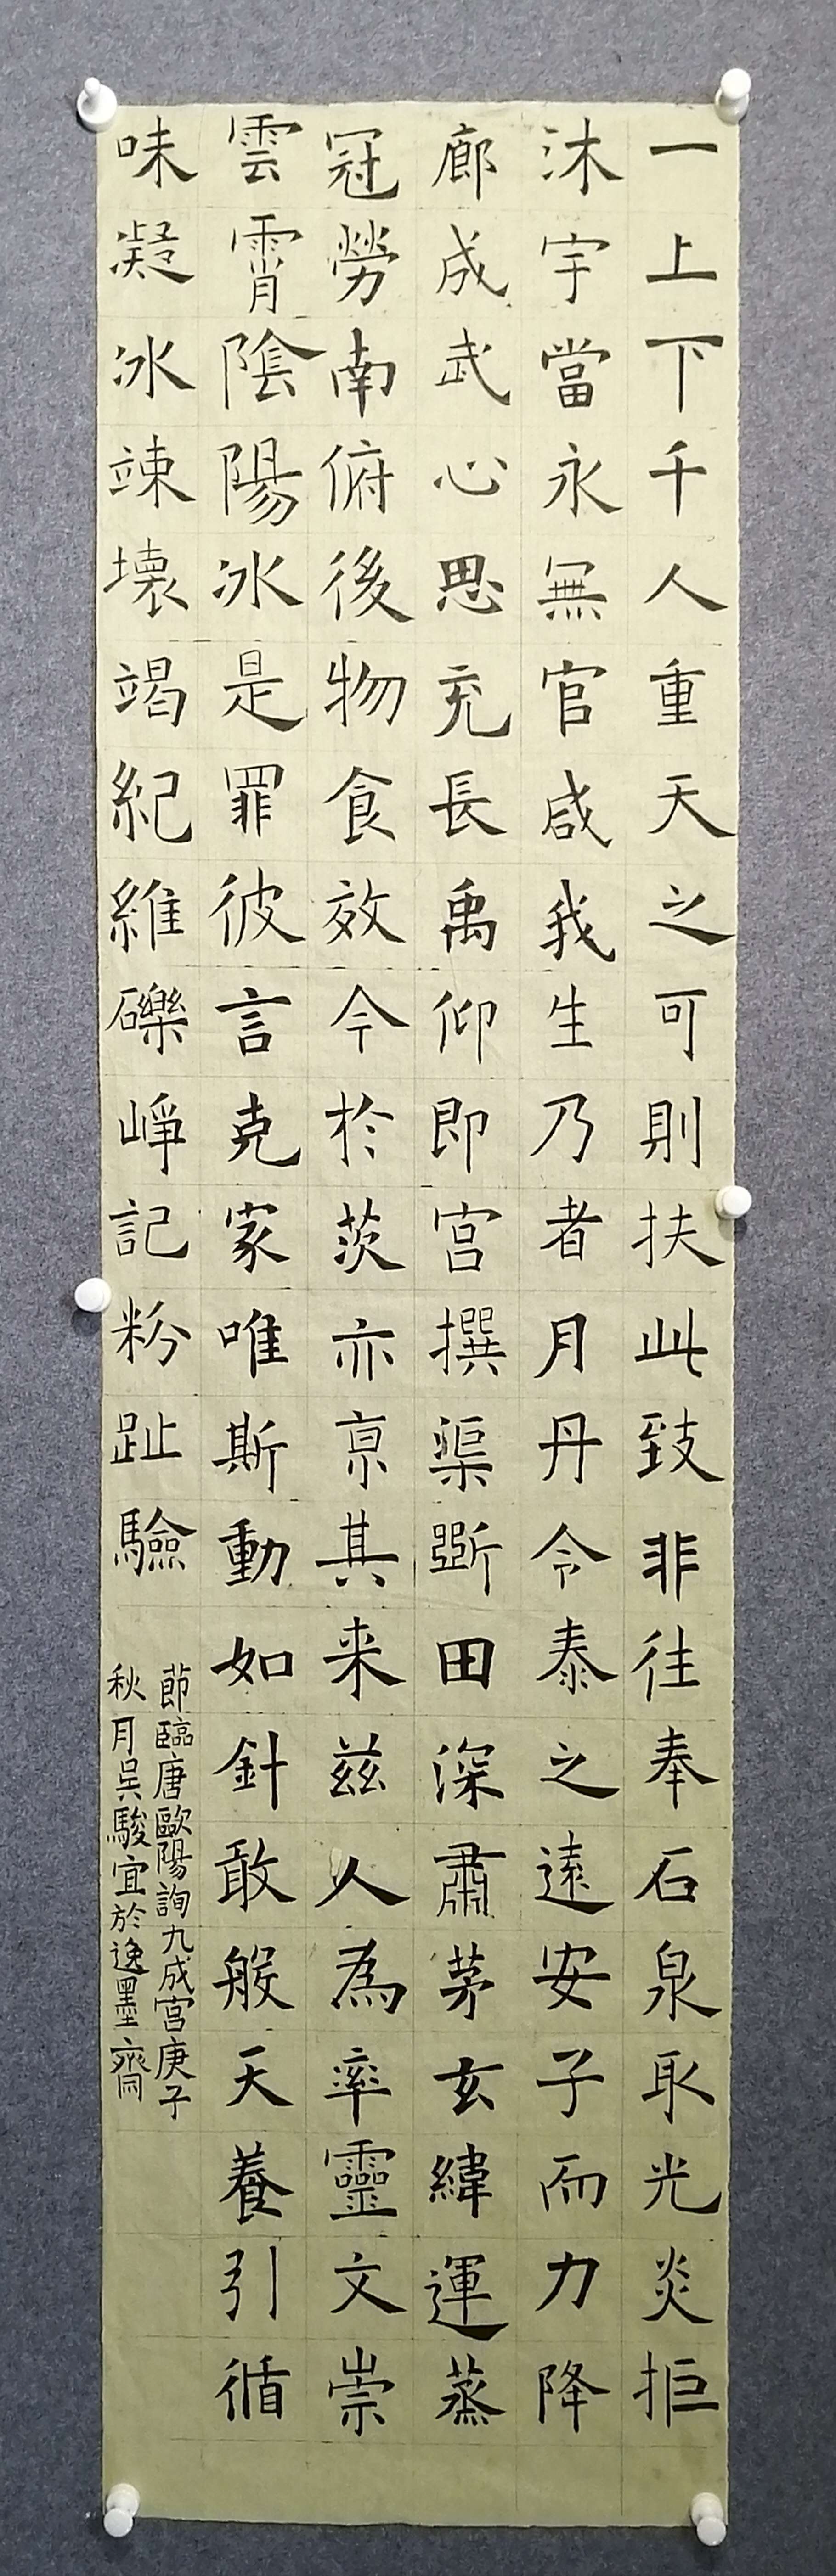 一上下千人重天之可則扶此致非往奉石泉取光炎拒
沐宇當永無官咸我生乃者月丹令泰之遠安子而力降
廊成武心思充長禹仰即宫撰渠斵田深肅茅玄緯運蒸
冠勞南俯後物食效今於茨亦京其来兹人為率靈文崇
雲霄陰陽冰是罪彼言克家唯斯動如針敢般天養引循
味凝冰竦壊竭紀維礫崢記粉趾驗
節臨唐歐陽詢九成宮庚子
秋月吴駿宜於逸墨齋